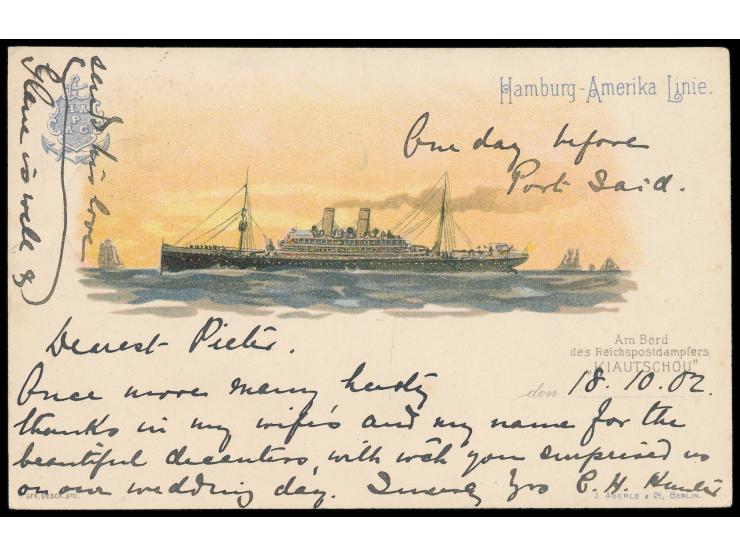 Hamburg-Amerika Linie.
HAPAG
One day before
Port Said.
Dearest Pieter.
Am Bord
des Reichspostdampfers
"KIAUTSCHOU"
den 18.10.02.
Once more many hearty
thanks in my wife's and my name for the
beautiful decanters, with wch you surprised us
on our wedding day. Yrs C. H.
GES. GESCH. 3711.
J. ABERLE & Co, BERLIN.
is well &
sends his love